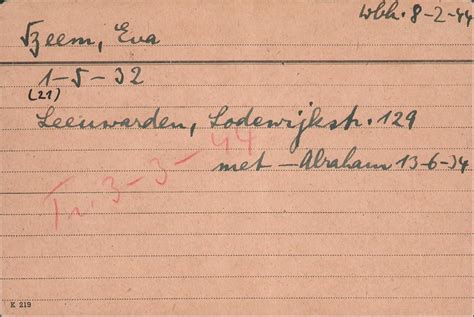 Wbk. 8-2-44
Tzeem, Eva
1-5-32
(21)
Leeuwarden, Lodewijkstr. 129
met — Abraham 13-6-34
Tr. 3-3-44
K 219